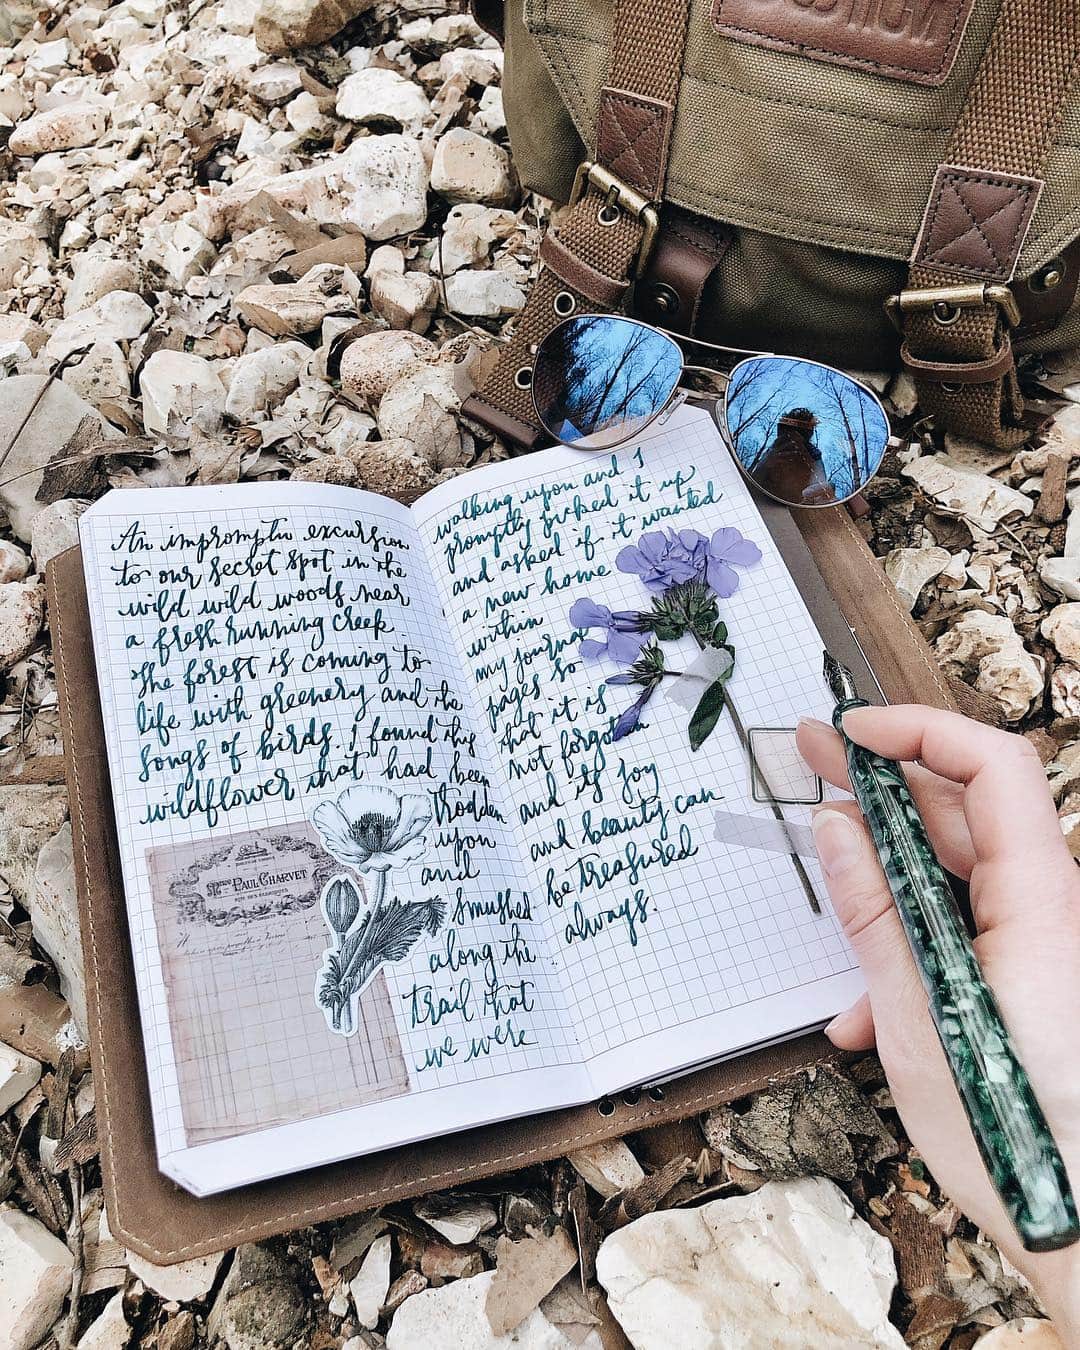 An impromptu excursion
to our secret spot in the
wild wild woods near
a fresh running creek.
The forest is coming to
life with greenery and the
songs of birds. I found this
wildflower that had been
trodden
upon
and
smushed
along the
trail that
we were
PAUL CHARVET
walking upon and I
promptly picked it up
and asked if it wanted
a new home
within
my journal
pages so
that it is
not forgotten
and its joy
and beauty can
be treasured
always.